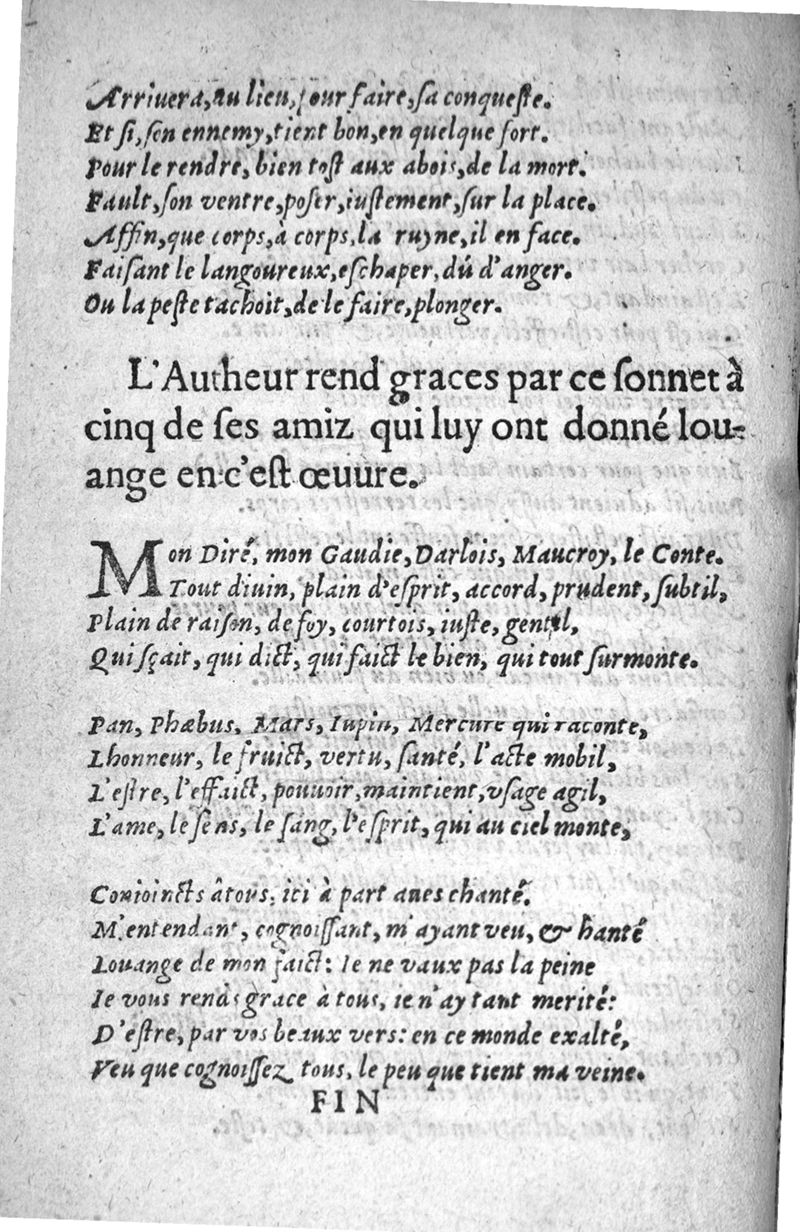 Arriuera, au lieu, pour faire, sa conqueste.
Et si, son ennemy, tient bon, en quelque fort.
Pour le rendre, bien tost aux abois, de la mort.
Fault, son ventre, poser, iustement, sur la place.
Affin, que corps, à corps, la ruyne, il en face.
Faisant le langoureux, eschaper, dú d'anger.
Ou la peste tachoit, de le faire, plonger.
L'Autheur rend graces par ce sonnet à
cinq de ses amiz qui luy ont donné lou-
ange en c'est œuure.
Mon Diré, mon Gaudie, Darlois, Maucroy, le Conte.
Tout diuin, plain d'esprit, accord, prudent, subtil,
Plain de raison, de foy, courtois, iuste, gentil,
Qui sçait, qui dict, qui faict le bien, qui tout surmonte.
Pan, Phæbus, Mars, Iupin, Mercure qui raconte,
Lhonneur, le fruict, vertu, santé, l'acte mobil,
L'estre, l'effaict, pouuoir, maintient, vsage agil,
L'ame, le sens, le sang, l'esprit, qui au ciel monte,
Conioincts âtous, ici à part aues chanté.
M'entendant, cognoissant, m'ayant veu, & hanté
Louange de mon faict: Ie ne vaux pas la peine
Ie vous rends grace à tous, ie n'ay tant merité:
D'estre, par vos beaux vers: en ce monde exalté,
Veu que cognoissez tous, le peu que tient ma veine.
FIN